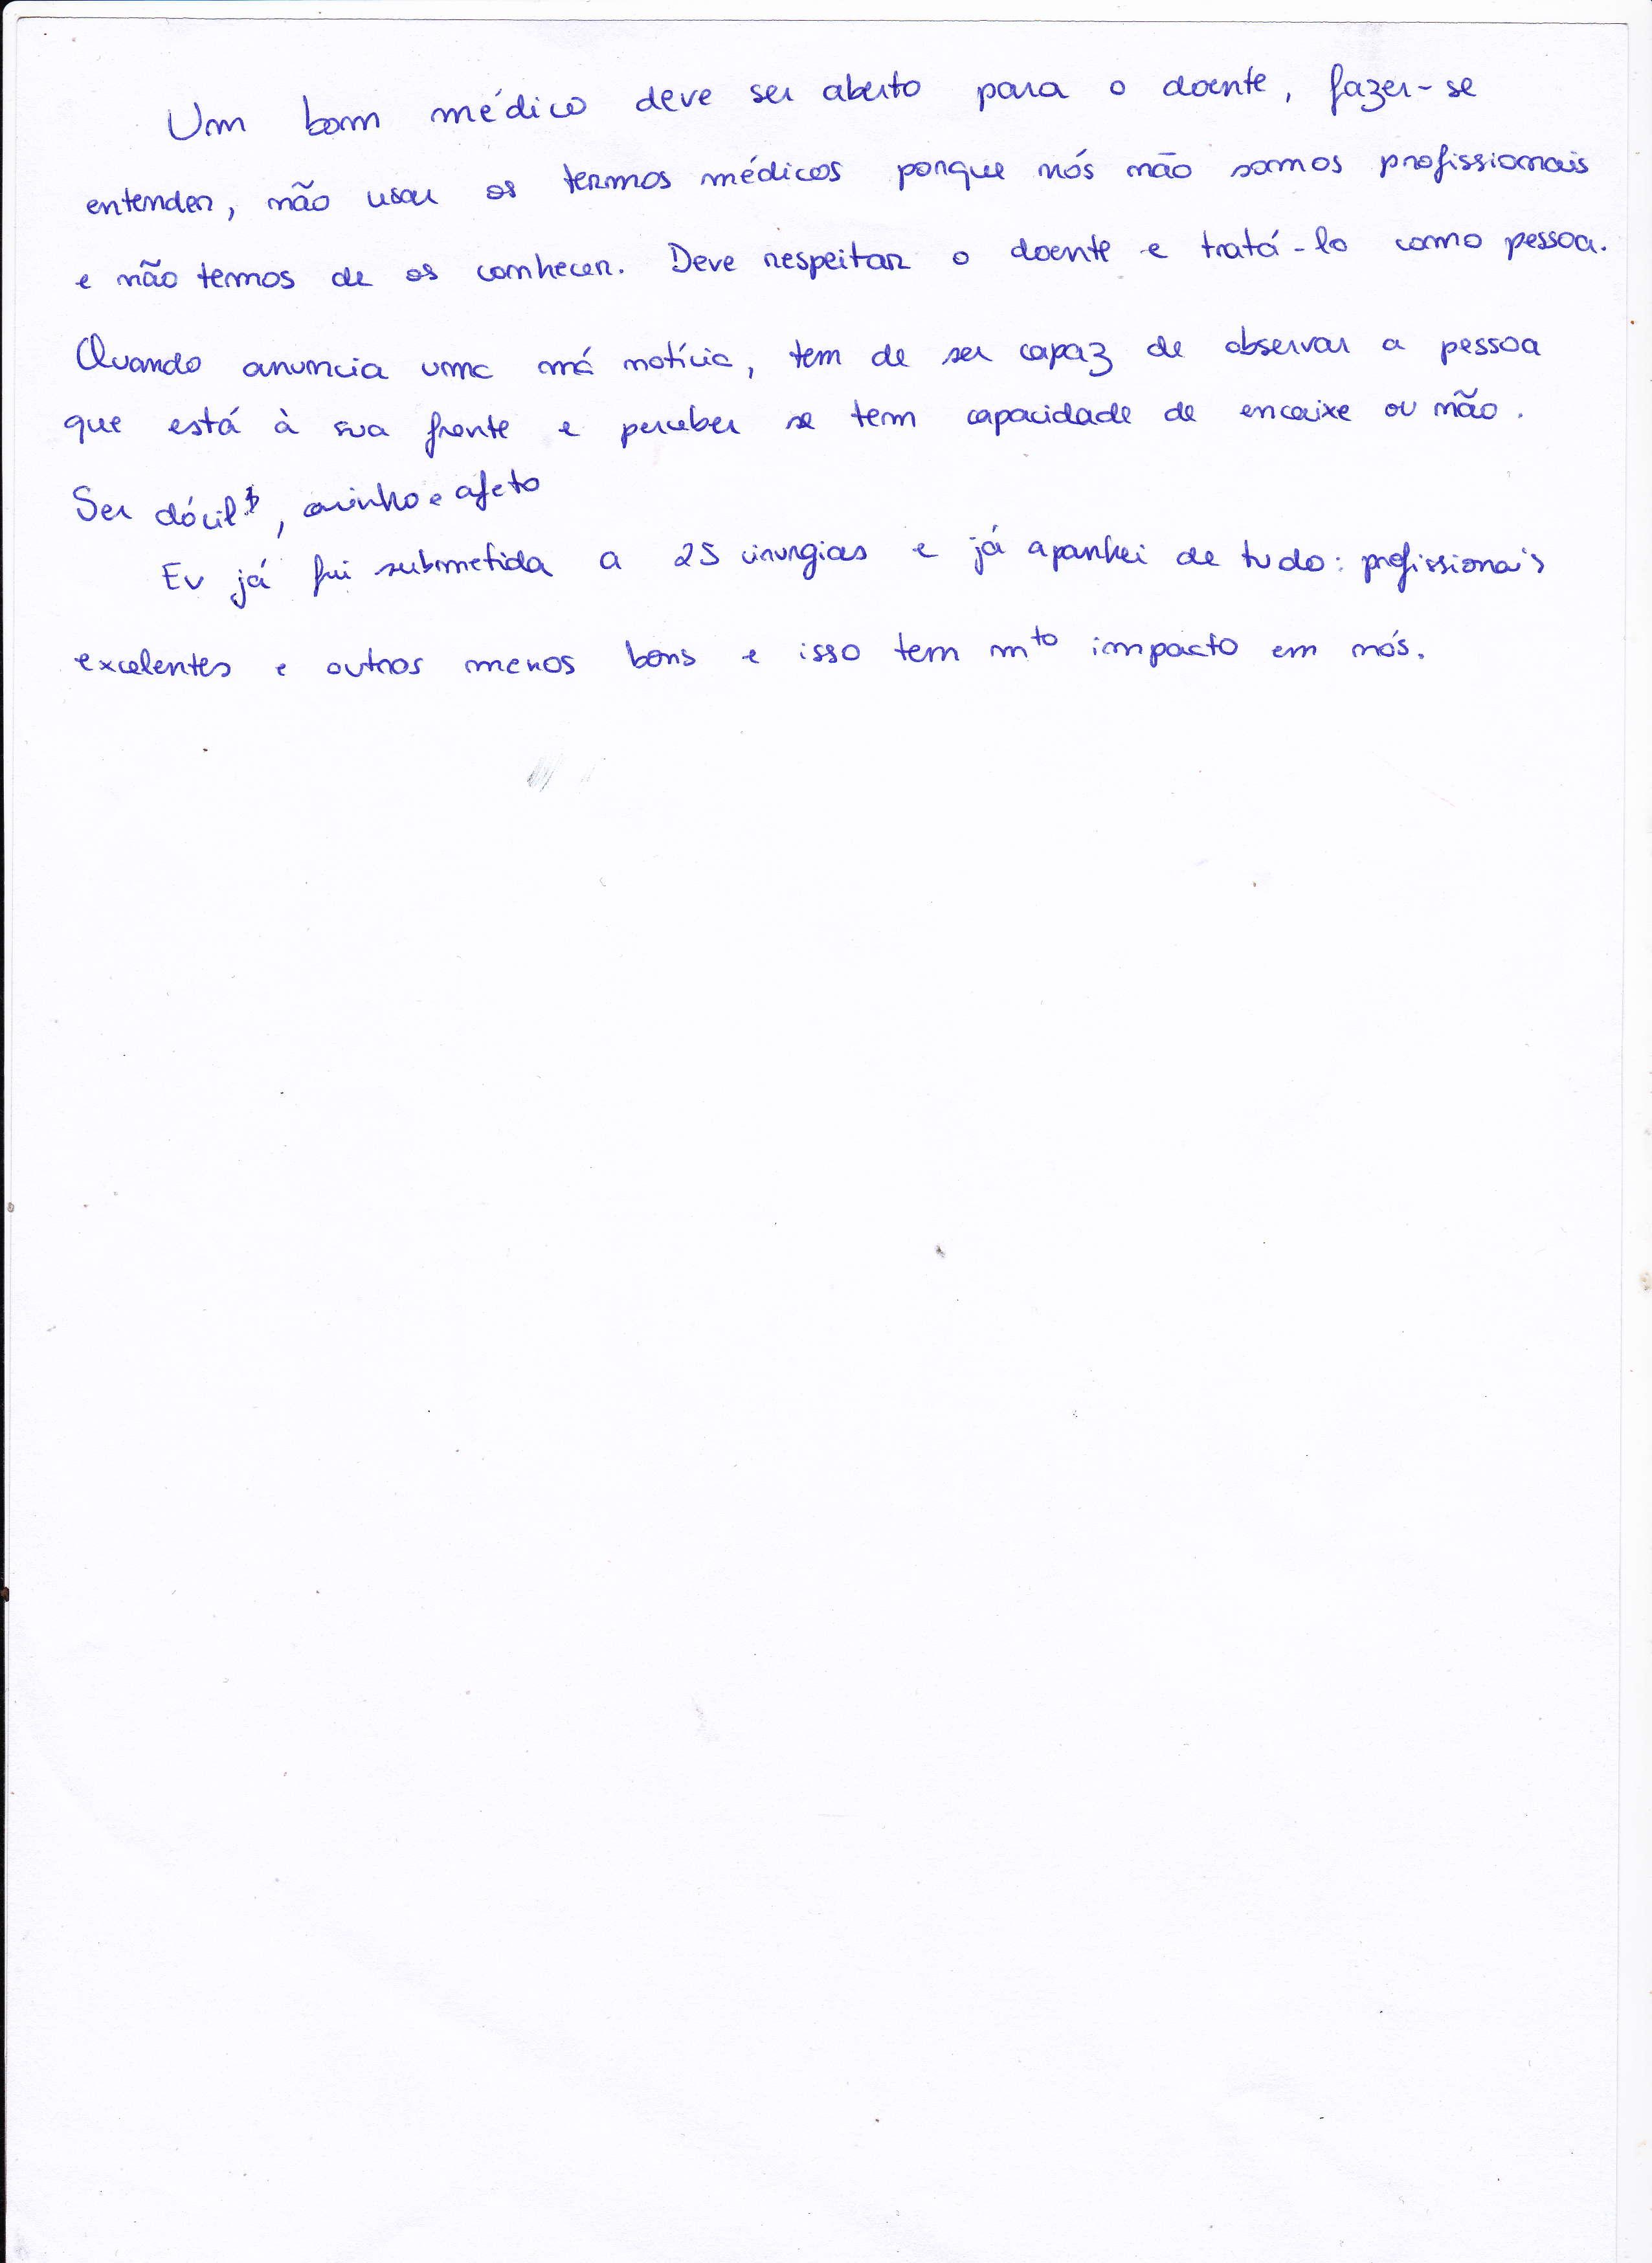 Um bom médico deve ser aberto para o doente, fazer-se
entender, não usar os termos médicos porque nós não somos profissionais
e não temos de os conhecer. Deve respeitar o doente e tratá-lo como pessoa.
Quando anuncia uma má notícia, tem de ser capaz de observar a pessoa
que está à sua frente e perceber se tem capacidade de encaixe ou não.
Ser dócil, carinho e afeto
Eu já fui submetida a 25 cirurgias e já apanhei de tudo: profissionais
excelentes e outros menos bons e isso tem mto impacto em nós.